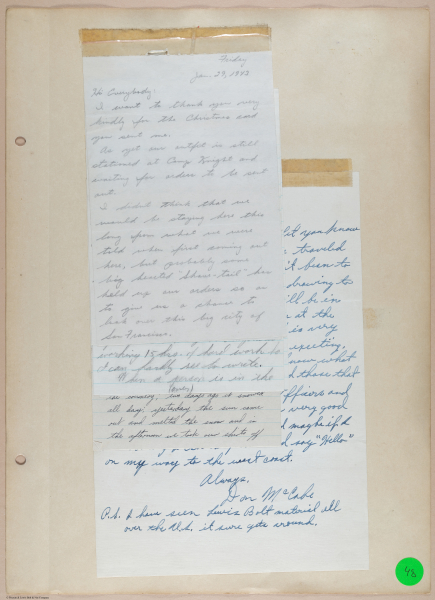 Friday
Jan. 29, 1943
Hi Everybody:
I want to thank you very
kindly for the Christmas card
you sent me.
As yet our outfit is still
stationed at Camp Knight and
waiting for orders to be sent
out.
I didn't think that we
would be staying here this
long upon what we were
told when first coming out
here, but probably some
big hearted "chair-tail" has
held up our orders so as
to give us a chance to
look over this big city of
San Francisco.
working 15 hrs. of hard work so
I can hardly see to write.
When a person is in the
(every)
all day, yesterday the sun came
out and melted the snow and in
the afternoon it took our shirts off
let you know
traveled
it been to
ill be in
at the
is very
expecting.
now what
d those that
officers and
very good
d maybe if I
d say "Hello"
on my way to the west coast.
Always,
Don McCabe
P.S. I have seen Lewis Bolt material all
over the U.S. it sure gets around.
48